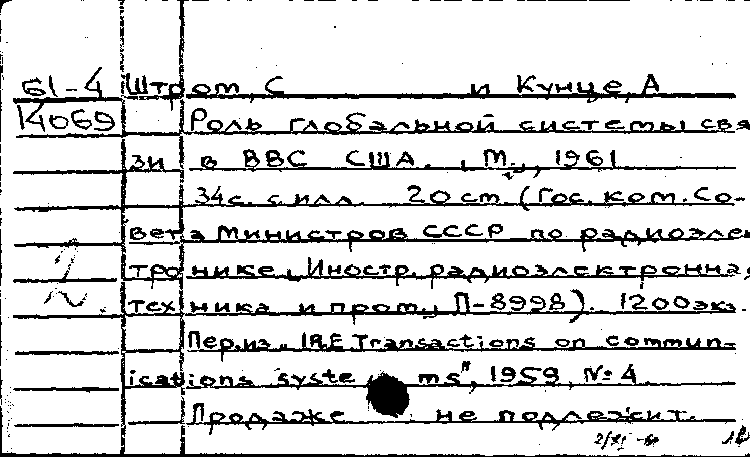 61-4 Штром, С и Кунце, А
14069 Роль глобальной системы свя
зи в ВВС США. , М., 1961
34с. с илл. 20 cm. (Гос. ком. Со-
вета Министров СССР по радиоэлек
тронике. Иностр. радиоэлектронная
техника и пром., П-8998). 1200экз.
Пер.из „IRE Transactions on commun-
ications syste ms", 1959, №4.
Продаже не подлежит.
2/XI-61